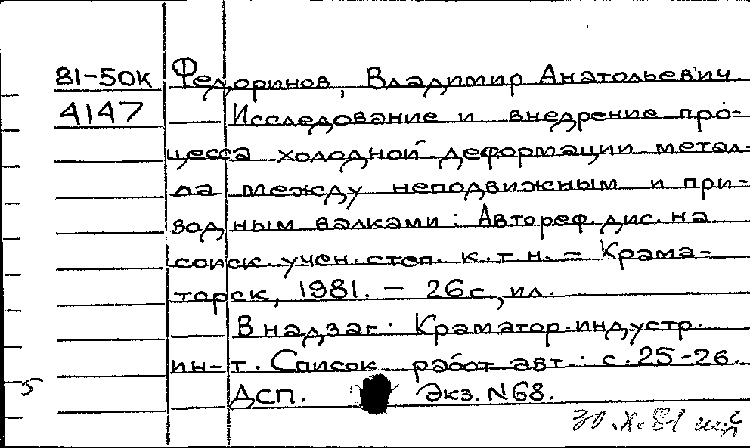 81-50к Федоринов, Владимир Анатольевич
4147 Исследование и внедрение про-
цесса холодной деформации метал-
ла между неподвижным и при-
водным валками: Автореф. дис. на
соиск. учен. степ. к.т.н. - Крама-
торск, 1981. - 26с., ил.
В надзаг.: Краматор. индустр.
ин-т. Список работ авт.: с. 25-26.
5 ДСП. Экз. N68.
30.X.81